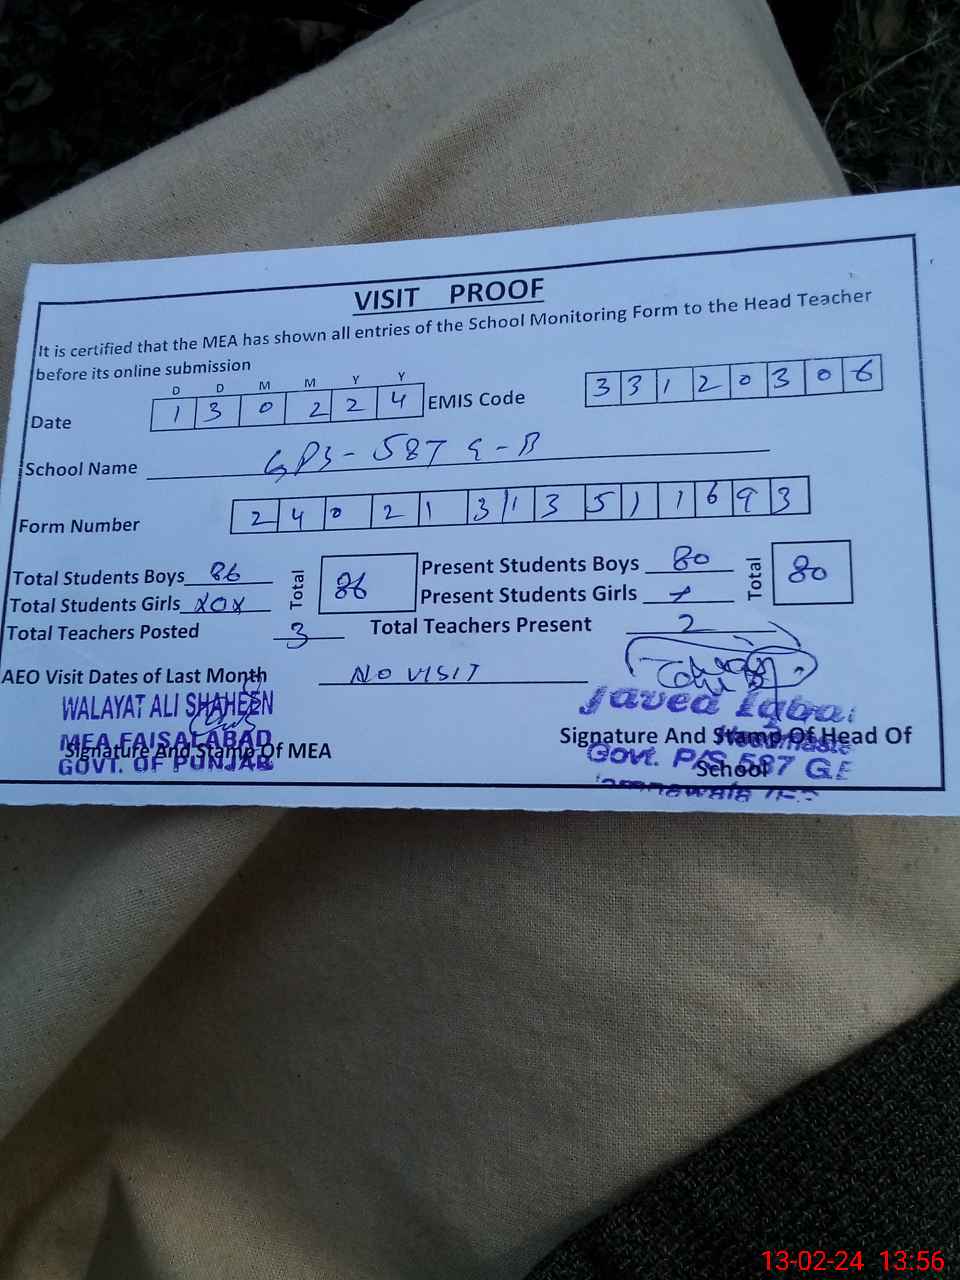 VISIT PROOF
It is certified that the MEA has shown all entries of the School Monitoring Form to the Head Teacher
before its online submission
D D M M Y Y
Date 1 3 0 2 2 4 EMIS Code 3 3 1 2 0 3 0 6
School Name GPS - 587 G-B
Form Number 2 4 0 2 1 3 1 3 5 1 1 6 9 3
Total Students Boys 86 Total 86 Present Students Boys 80 Total 80
Total Students Girls xox Present Students Girls x
Total Teachers Posted 3 Total Teachers Present 2
AEO Visit Dates of Last Month NO VISIT
WALAYAT ALI SHAHEEN
MEA FAISALABAD
GOVT. OF PUNJAB
Signature And Stamp Of MEA
Javed Iqbal
Signature And Stamp Of Head Of
School
Headmaster
Govt. P/S 587 G.B
13-02-24 13:56